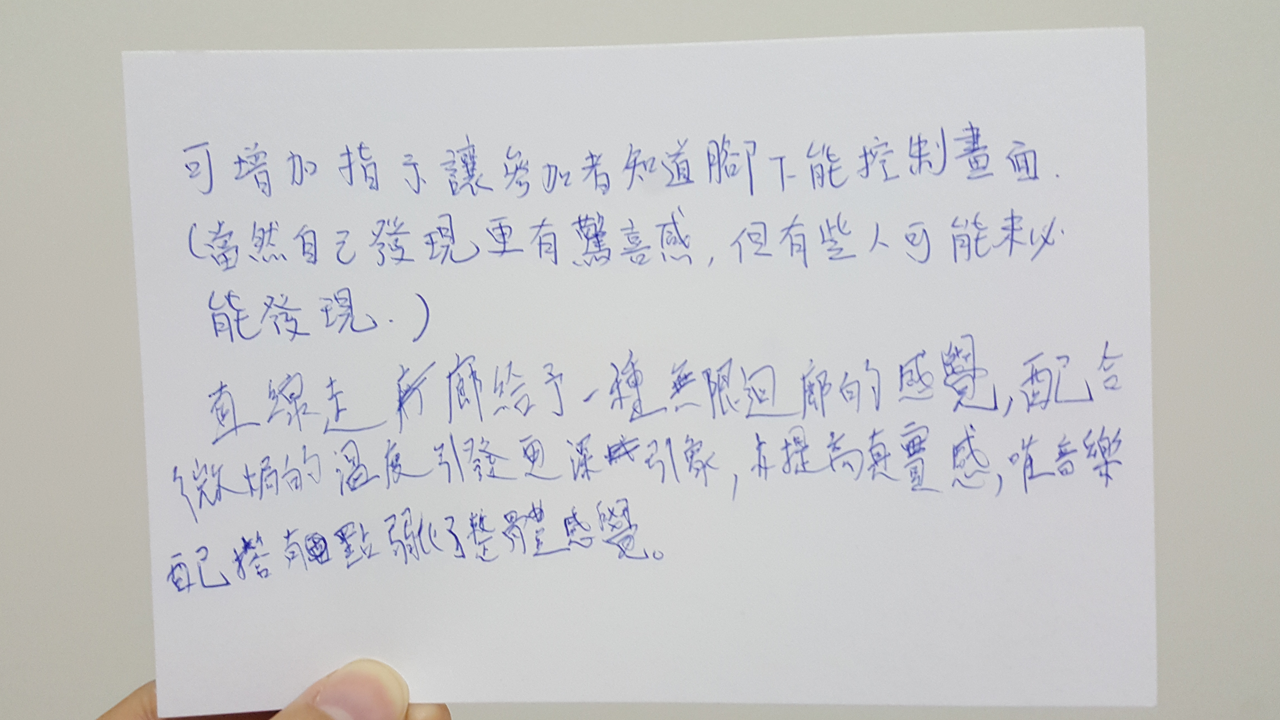 可增加指示讓參加者知道腳下能控制畫面.
(當然自己發現更有驚喜感,但有些人可能未必
能發現.)
直線走廊給予一種無限迴廊的感覺,配合
微焗的溫度引發更深引象,亦提高真實感,唯音樂
配搭有點弱化了整體感覺。